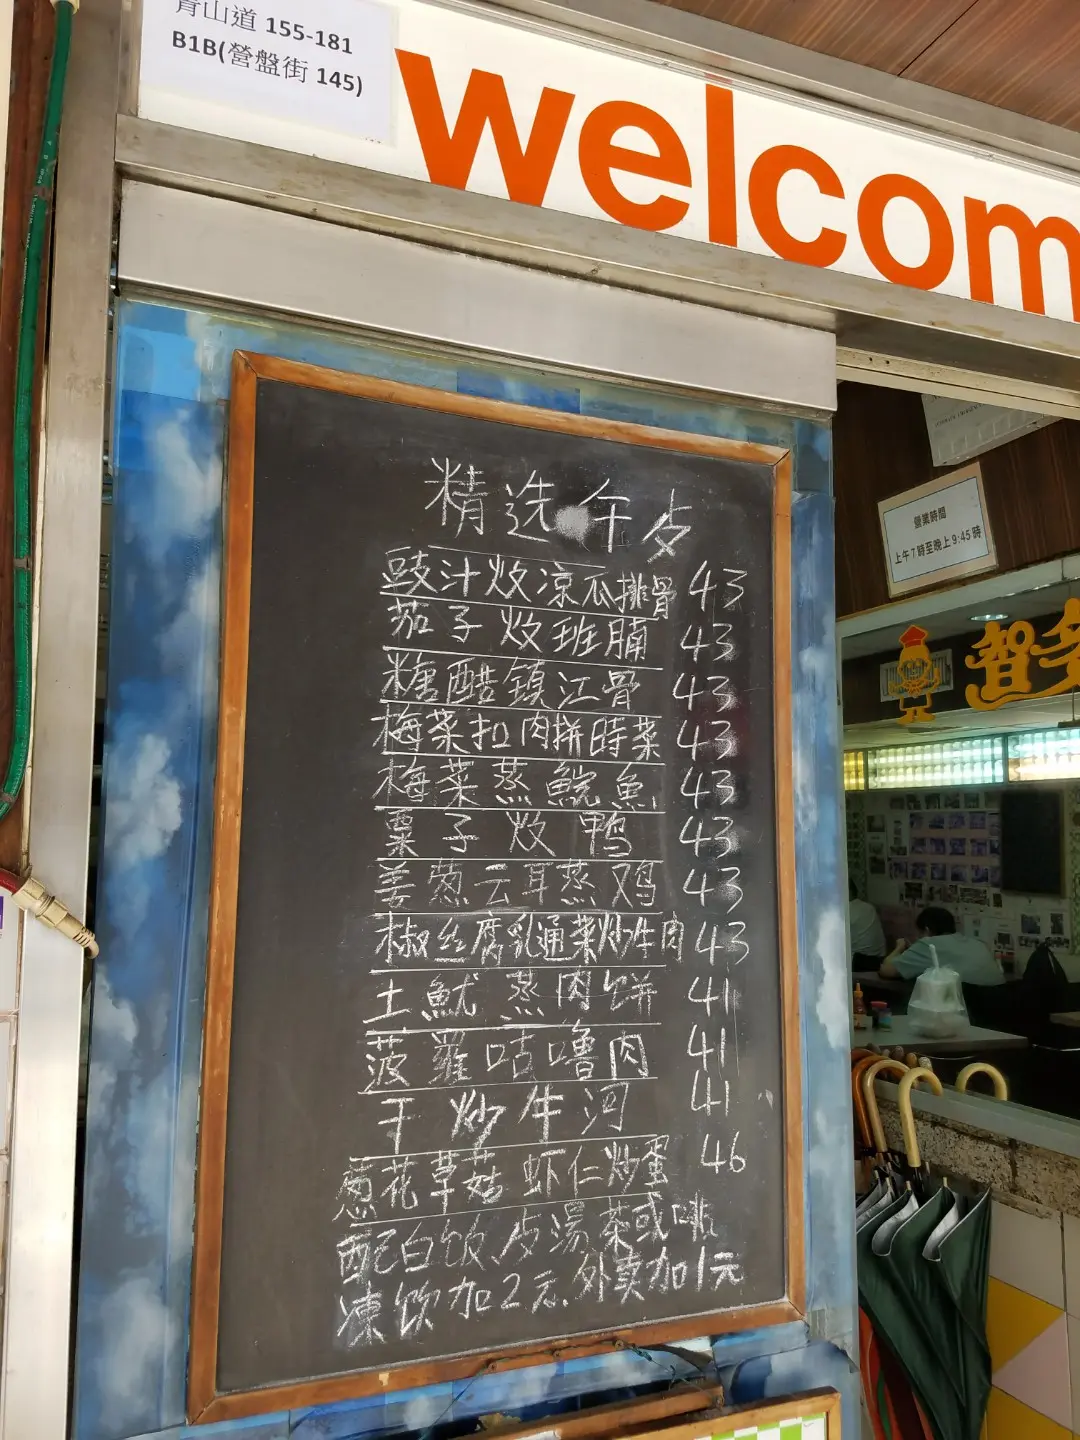 青山道 155-181
B1B(營盤街 145)
welcom
營業時間
上午7時至晚上9:45時
智多
精选午歺
豉汁炆凉瓜排骨 43
茄子炆班腩 43
糖醋镇江骨 43
梅菜扣肉拼時菜 43
梅菜蒸鯇魚 43
粟子炆鸭 43
姜葱云耳蒸鸡 43
椒丝腐乳通菜炒牛肉 43
土魷蒸肉饼 41
菠蘿咕嚕肉 41
干炒牛河 41
葱花草菇虾仁炒蛋 46
配白饭,歺湯茶或啡
凍飲加2元.外卖加1元